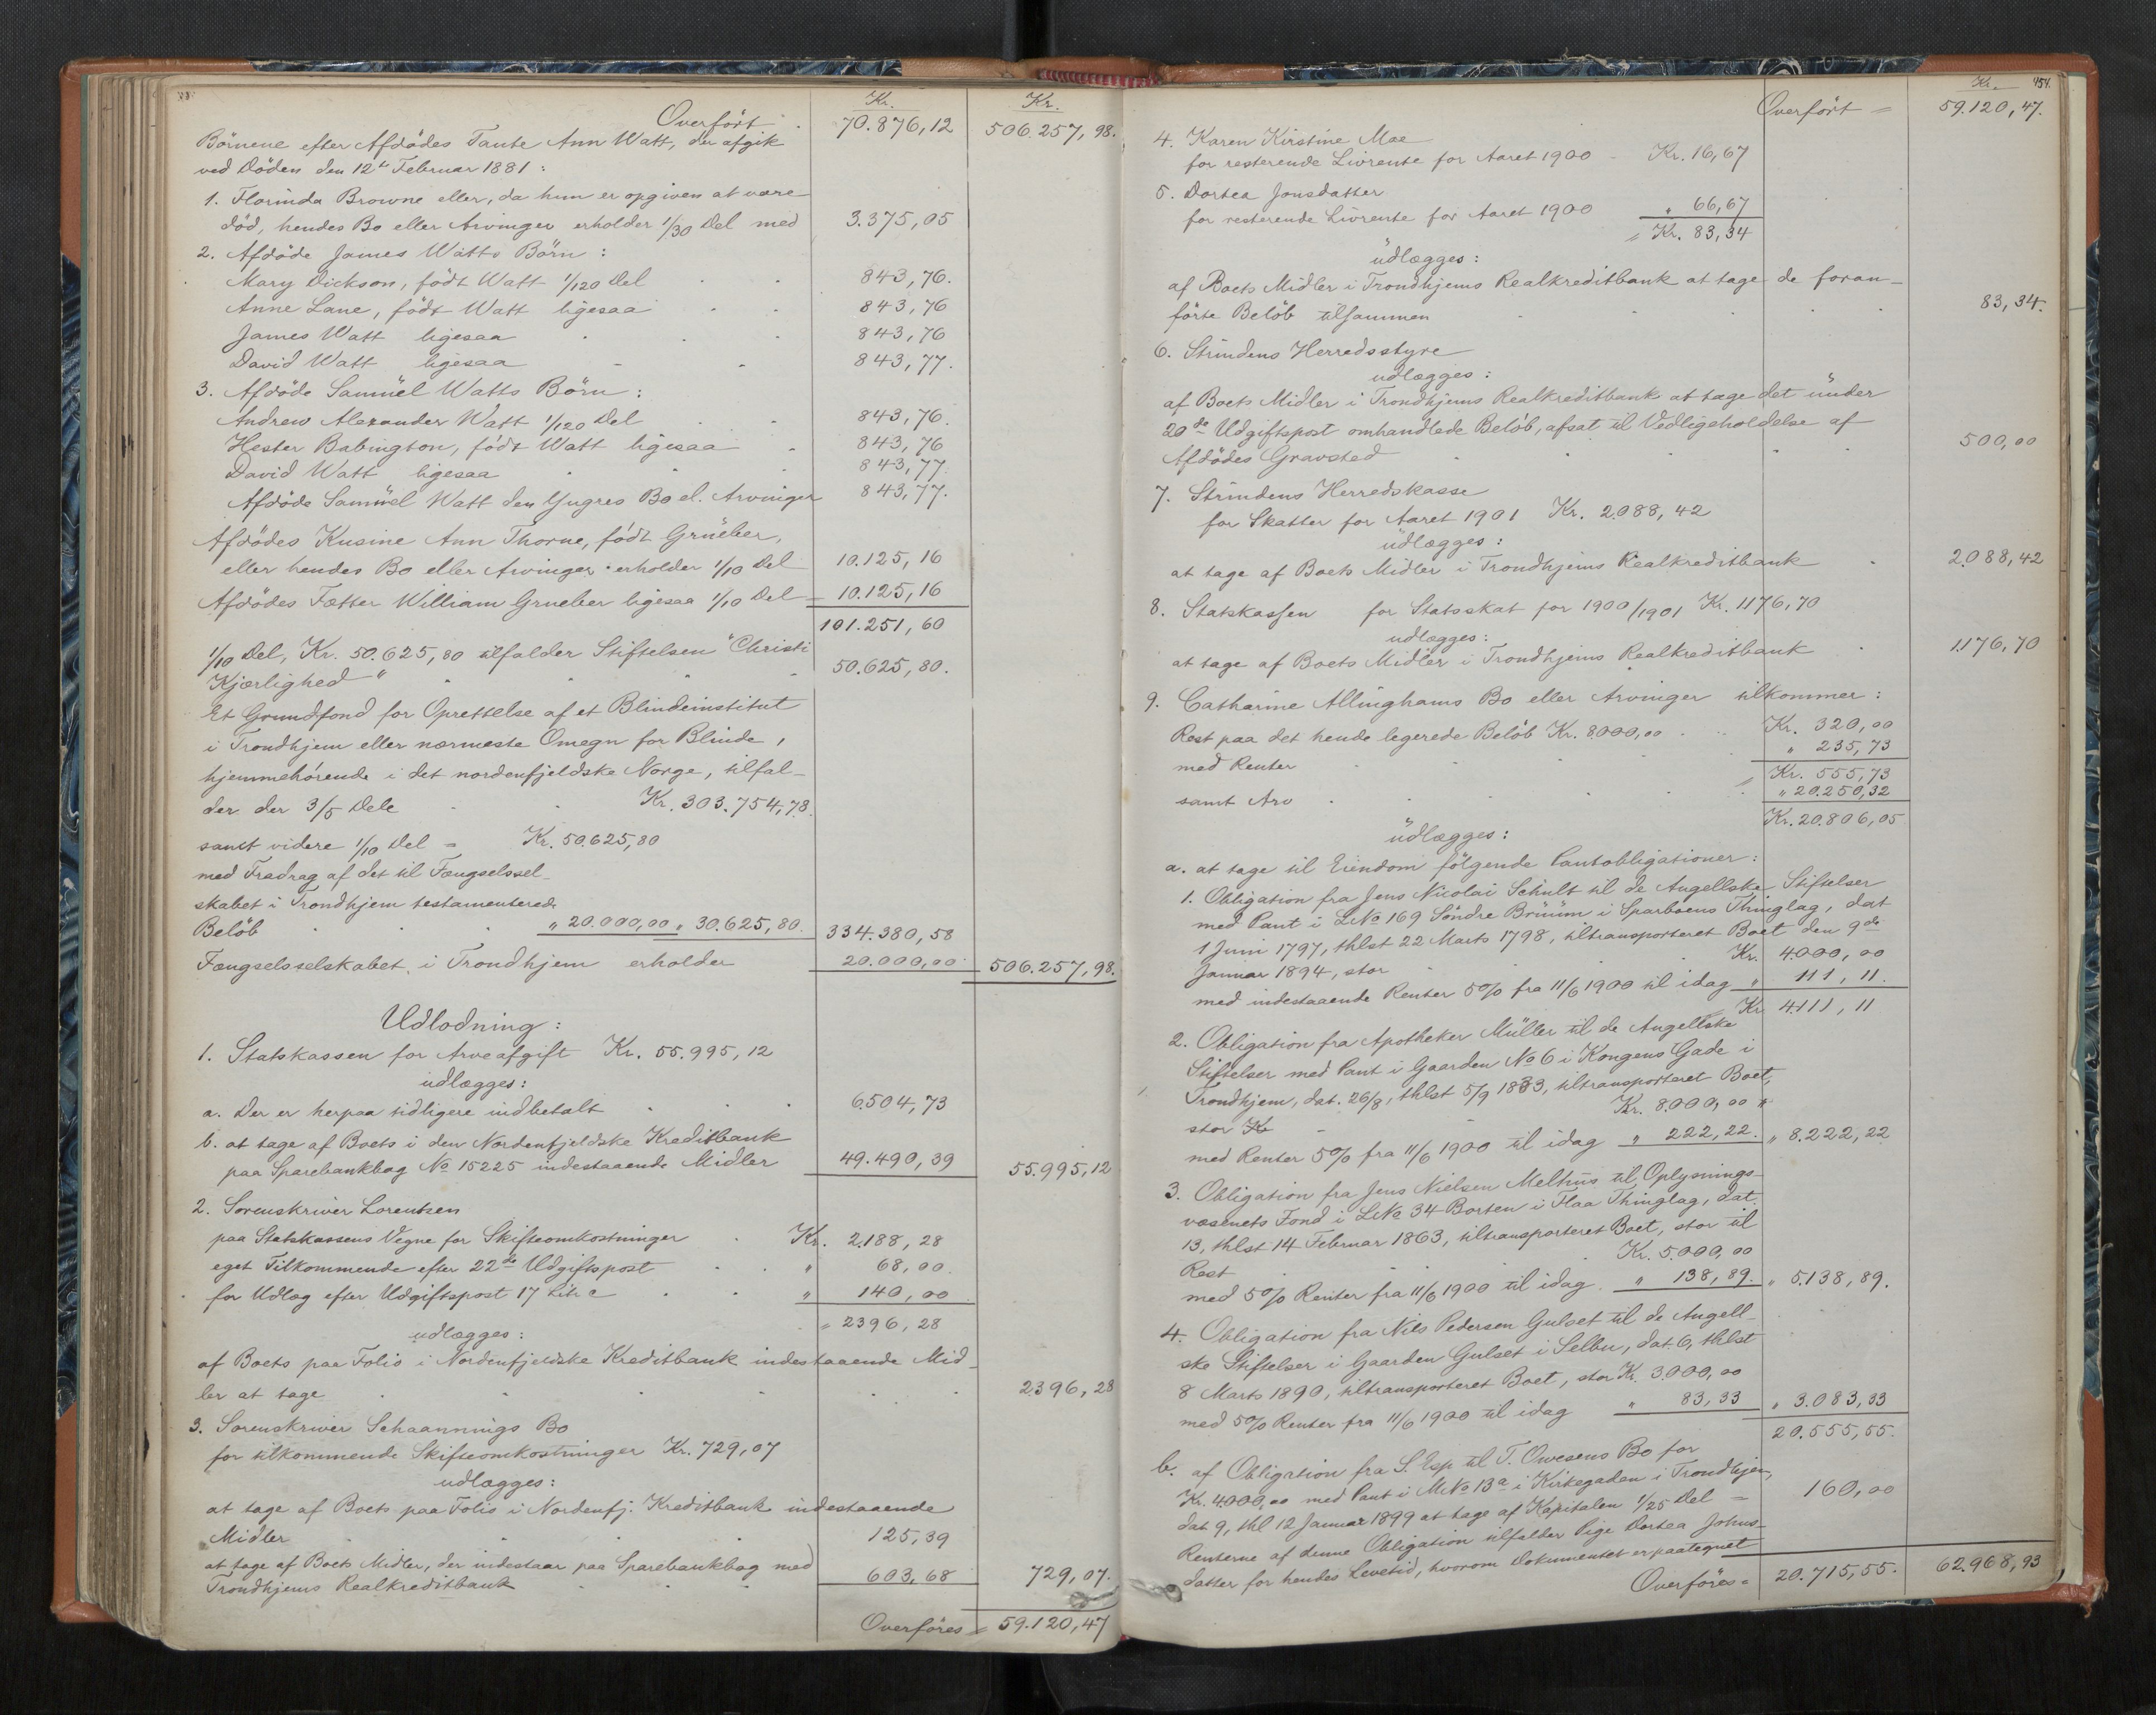 Kr. Kr.
Overført 70.876,12 506.257,98.
Börnene efter Afdödes Tante Ann Watt, der afgik
ved Döden den 12te Februar 1881:
1. Florinda Browne eller, da hun er opgiven at være
död, hendes Bo eller Arvinger erholder 1/30 Del med 3.375,05
2. Afdöde James Watts Börn:
Mary Dickson, födt Watt 1/120 Del 843,76.
Anne Lane, födt Watt ligesaa 843,76
James Watt ligesaa 843,76
David Watt ligesaa 843,77.
3. Afdöde Samüel Watts Börn:
Andrew Alexander Watt 1/120 Del 843,76.
Hester Babington, födt Watt ligesaa 843,76
David Watt ligesaa 843,77.
Afdöde Samüel Watt den Yngres Bo el. Arvinger 843,77.
Afdödes Kusine Ann Thorne, födt Grüeber,
eller hendes Bo eller Arvinger erholder 1/10 Del 10.125,16
Afdödes Fætter William Grueber ligesaa 1/10 Del 10.125,16
101.251,60
1/10 Del, Kr. 50.625,80 tilfalder Stiftelsen "Christi
Kjærlighed" 50.625,80.
Et Grundfond for Oprettelse af et Blindeinstitut
i Trondhjem eller nærmeste Omegn for Blinde,
hjemmehörende i det nordenfjeldske Norge, tilfal-
der der 3/5 Dele Kr. 303.754,78.
samt videre 1/10 Del = Kr. 50.625,80
med Fradrag af det til Fængselssel-
skabet i Trondhjem testamenterede
Belöb " 20.000,00 " 30.625,80. 334.380,58
Fængselsselskabet i Trondhjem erholder 20.000,00 506.257,98.
Udlodning:
1. Statskassen for Arveafgift Kr. 55.995,12
udlægges:
a. Der er herpaa tidligere indbetalt 6.504,73
b. at tage af Boets i den Nordenfjeldske Kreditbank
paa Sparebankbog No 15225 indestaaende Midler 49.490,39 55.995,12
2. Sorenskriver Lorentzen
paa Statskassens Vegne for Skifteomkostninger Kr. 2.188,28
eget Tilkommende efter 22de Udgiftspost " 68,00.
for Udlæg efter Udgiftspost 17 Litr c " 140,00
" 2396,28
udlægges:
af Boets paa Folio i Nordenfjeldske Kreditbank indestaaende Mid-
ler at tage 2396,28
3. Sorenskriver Schaannings Bo
for tilkommende Skifteomkostninger Kr. 729,07
udlægges:
at tage af Boets paa Folio i Nordenfj. Kreditbank indestaaende
Midler 125,39
at tage af Boets Midler, der indestaar paa Sparebankbog med
Trondhjems Realkreditbank 603,68 729,07.
Overföres = 59.120,47
Kr. 454.
Overfört = 59.120,47.
4. Karen Kirstine Moe
for resterende Livrente for Aaret 1900 - Kr. 16,67
5. Dortea Jonsdatter
for resterende Livrente for Aaret 1900 " 66,67
= Kr. 83,34
üdlægges:
af Boets Midler i Trondhjems Realkreditbank at tage de foran-
förte Belöb tilsammen 83,34.
6. Strindens Herredsstyre
udlægges:
af Boets Midler i Trondhjems Realkreditbank at tage det ünder
20de Udgiftspost omhandlede Belöb, afsat til Vedligeholdelse af
Afdödes Gravsted 500,00
7. Strindens Herredskasse
for Skatter for Aaret 1901 Kr. 2.088,42
üdlægges:
at tage af Boets Midler i Trondhjems Realkreditbank 2.088,42
8. Statskassen for Statsskat for 1900/1901 Kr. 1176,70
udlægges:
at tage af Boets Midler i Trondhjems Realkreditbank 1.176,70
9. Catharine Allinghams Bo eller Arvinger tilkommer:
Rest paa det hende legerede Belöb Kr. 8.000,00 Kr. 320,00
med Renter " 235,73
= Kr. 555,73
samt Arv " 20.250,32
Kr. 20.806,05
üdlægges:
a. at tage til Eiendom fölgende Pantobligationer:
1. Obligation fra Jens Nicolai Schult til de Angellske Stiftelser
med Pant i LNo 169 Söndre Brüüm i Sparboens Thinglag, dat
1 Juni 1797, thlst 22 Marts 1798, tiltransporteret Boet den 9de
Januar 1894, stor Kr. 4.000,00
med indestaaende Renter 5% fra 11/6 1900 til idag " 111,11.
Kr. 4.111,11
2. Obligation fra Apotheker Müller til de Angellske
Stiftelser med Pant i Gaarden No 6 i Kongens Gade i
Trondhjem, dat. 26/8, thlst 5/9 1883, tiltransporteret Boet,
stor Kr Kr. 8.000,00
med Renter 5% fra 11/6 1900 til idag " 222,22. " 8.222,22
3. Obligation fra Jens Nielsen Melhus til Oplysnings-
væsenets Fond i LNo 34 Borten i Flaa Thinglag, dat.
13, thlst 14 Februar 1863, tiltransporteret Boet, stor til
Rest Kr. 5.000,00
med 5% Renter fra 11/6 1900 til idag " 138,89. " 5.138,89.
4. Obligation fra Nils Pedersen Gulset til de Angell-
ske Stiftelser i Gaarden Gulset i Selbu, dat. 6, thlst
8 Marts 1890, tiltransporteret Boet, stor Kr. 3.000,00
med 5% Renter fra 11/6 1900 til idag " 83,33 " 3.083,33
20.555,55.
b. af Obligation fra S. Esp til T. Owesens Bo for
Kr. 4.000,00 med Pant i MNo 13a i Kirkegaden i Trondhjem,
dat 9, thl 12 Januar 1899 at tage af Kapitalen 1/25 Del = 160,00
Renterne af denne Obligation tilfalder Pige Dortea Johns-
datter for hendes Levetid, hvorom Dokumentet er paategnet
Overföres = 20.715,55. 62.968,93